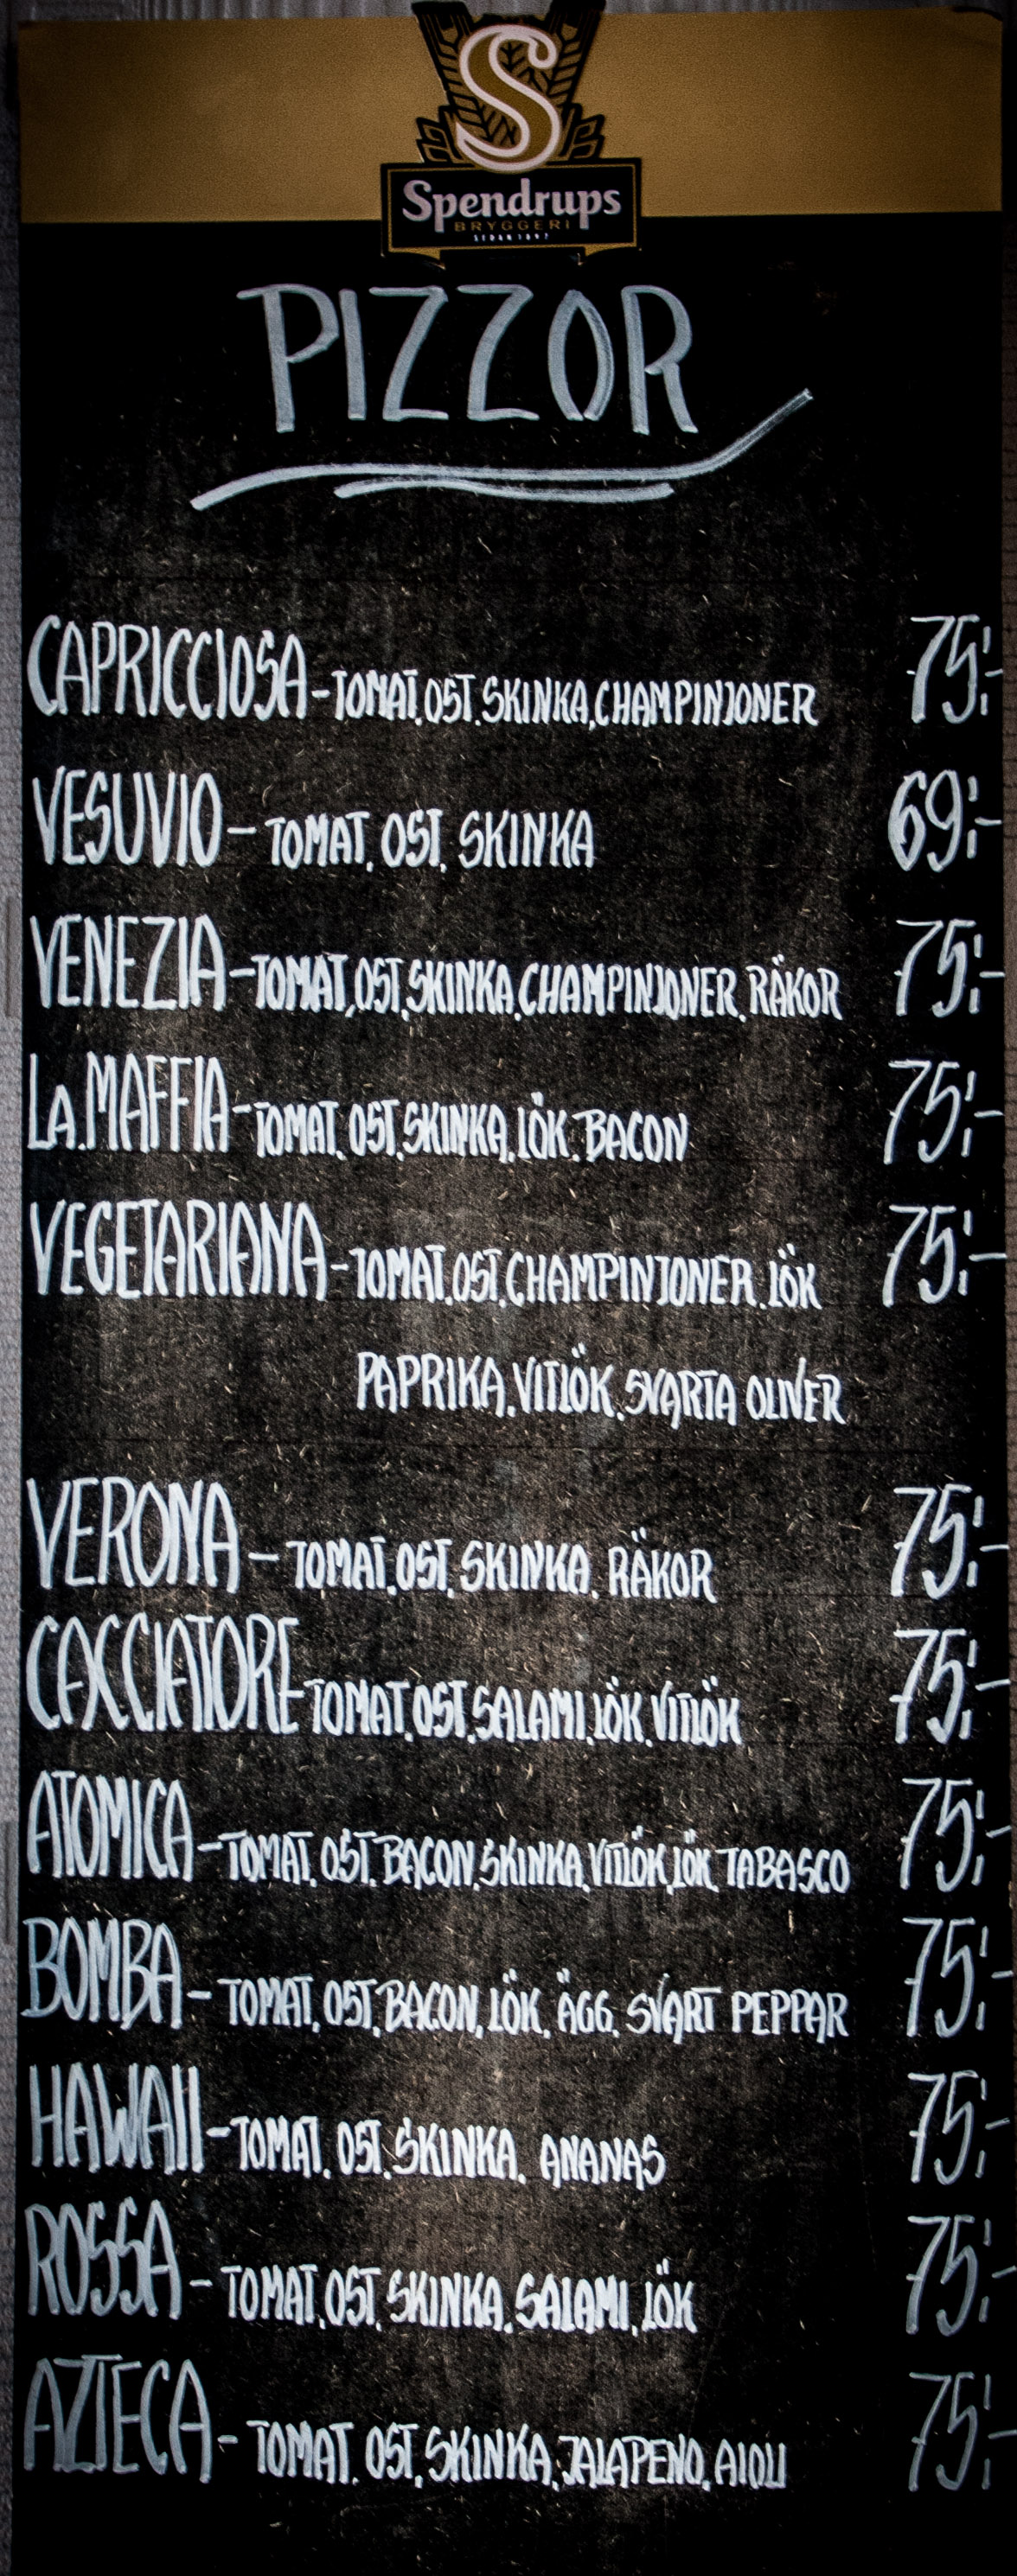 S
Spendrups
BRYGGERI
SEDAN 1897
PIZZOR
CAPRICCIOSA - TOMAT, OST, SKINKA, CHAMPINJONER 75:-
VESUVIO - TOMAT, OST, SKINKA 69:-
VENEZIA - TOMAT, OST, SKINKA, CHAMPINJONER, RÄKOR 75:-
LA.MAFFIA - TOMAT, OST, SKINKA, LÖK, BACON 75:-
VEGETARIANA - TOMAT, OST, CHAMPINJONER, LÖK 75:-
PAPRIKA, VITLÖK, SVARTA OLIVER
VERONA - TOMAT, OST, SKINKA, RÄKOR 75:-
CACCIATORE - TOMAT, OST, SALAMI, LÖK, VITLÖK 75:-
ATOMICA - TOMAT, OST, BACON, SKINKA, VITLÖK, LÖK, TABASCO 75:-
BOMBA - TOMAT, OST, BACON, LÖK, ÄGG, SVART PEPPAR 75:-
HAWAII - TOMAT, OST, SKINKA, ANANAS 75:-
ROSSA - TOMAT, OST, SKINKA, SALAMI, LÖK 75:-
AZTECA - TOMAT, OST, SKINKA, JALAPENO, AIOLI 75:-